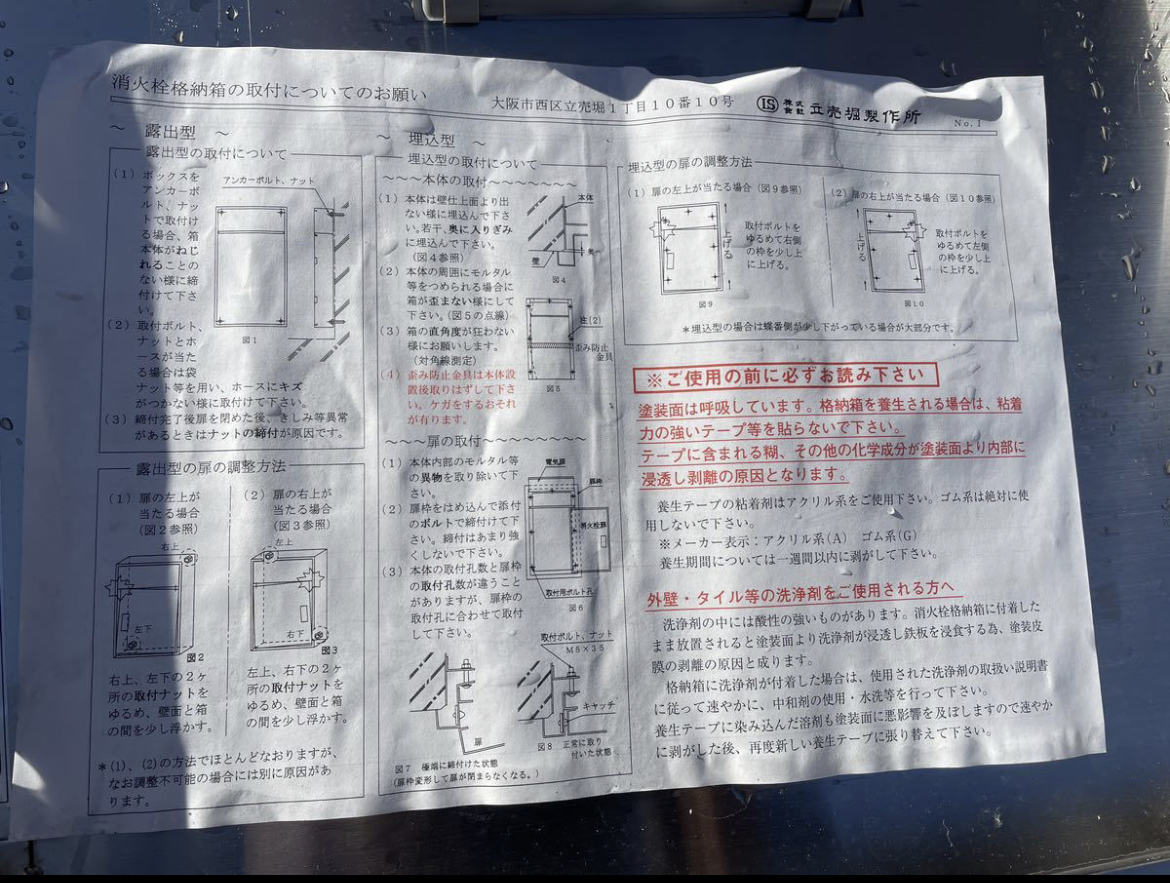 消火栓格納箱の取付についてのお願い
大阪市西区立売堀1丁目10番10号
LS 株式会社 立売堀製作所
No.1
~ 露出型 ~
露出型の取付について
(1) ボックスを
アンカーボ
ルト、ナッ
トで取付け
る場合、箱
本体がねじ
れることの
ない様に締
付けて下さ
い。
アンカーボルト、ナット
図1
(2) 取付ボルト、
ナットとホ
ースが当た
る場合は袋
ナット等を用い、ホースにキズ
がつかない様に取付けて下さい。
(3) 締付完了後扉を閉めた後、きしみ等異常
があるときはナットの締付が原因です。
露出型の扉の調整方法
(1) 扉の左上が
当たる場合
(図2参照)
右上
左下
図2
右上、左下の2ヶ
所の取付ナットを
ゆるめ、壁面と箱
の間を少し浮かす。
(2) 扉の右上が
当たる場合
(図3参照)
左上
右下
図3
左上、右下の2ヶ
所の取付ナットを
ゆるめ、壁面と箱
の間を少し浮かす。
*(1)、(2)の方法でほとんどなおりますが、
なお調整不可能の場合には別に原因があ
ります。
~ 埋込型 ~
埋込型の取付について
~~~本体の取付~~~~~~~
(1) 本体は壁仕上面より出
ない様に埋込んで下さ
い。若干、奥に入りぎみ
に埋込んで下さい。
(図4参照)
本体
壁
図4
(2) 本体の周囲にモルタル
等をつめられる場合に
箱が歪まない様にして
下さい。(図5の点線)
(3) 箱の直角度が狂わない
様にお願いします。
(対角線測定)
(4) 歪み防止金具は本体設
置後取りはずして下さ
い。ケガをするおそれ
が有ります。
注(2)
歪み防止
金具
図5
~~~扉の取付~~~~~~~~
(1) 本体内部のモルタル等
の異物を取り除いて下
さい。
(2) 扉枠をはめ込んで添付
のボルトで締付けて下
さい。締付はあまり強
くしないで下さい。
(3) 本体の取付孔数と扉枠
の取付孔数が違うこと
がありますが、扉枠の
取付孔に合わせて取付
して下さい。
電気扉
扉枠
消火栓扉
取付用ボルト孔
図6
取付ボルト、ナット
M5×35
キャッチ
扉
図7 極端に締付けた状態
(扉枠変形して扉が閉まらなくなる。)
図8 正常に取り
付いた状態
埋込型の扉の調整方法
(1) 扉の左上が当たる場合(図9参照)
上げる
取付ボルトを
ゆるめて右側
の枠を少し上
に上げる。
図9
(2) 扉の右上が当たる場合(図10参照)
上げる
取付ボルトを
ゆるめて左側
の枠を少し上
に上げる。
図10
*埋込型の場合は蝶番側が少し下がっている場合が大部分です。
※ご使用の前に必ずお読み下さい
塗装面は呼吸しています。格納箱を養生される場合は、粘着
力の強いテープ等を貼らないで下さい。
テープに含まれる糊、その他の化学成分が塗装面より内部に
浸透し剥離の原因となります。
養生テープの粘着剤はアクリル系をご使用下さい。ゴム系は絶対に使
用しないで下さい。
※メーカー表示:アクリル系(A) ゴム系(G)
養生期間については一週間以内に剥がして下さい。
外壁・タイル等の洗浄剤をご使用される方へ
洗浄剤の中には酸性の強いものがあります。消火栓格納箱に付着した
まま放置されると塗装面より洗浄剤が浸透し鉄板を浸食する為、塗装皮
膜の剥離の原因と成ります。
格納箱に洗浄剤が付着した場合は、使用された洗浄剤の取扱い説明書
に従って速やかに、中和剤の使用・水洗等を行って下さい。
養生テープに染み込んだ溶剤も塗装面に悪影響を及ぼしますので速やか
に剥がした後、再度新しい養生テープに張り替えて下さい。